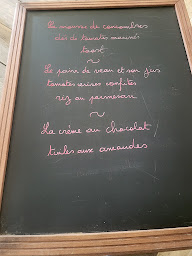 La mousse de concombres
dés de tomates mariné
toast
~
Le paire de veau et son jus
tomates cerises confites
riz au parmesan
~
La crème au chocolat
tuiles aux amandes